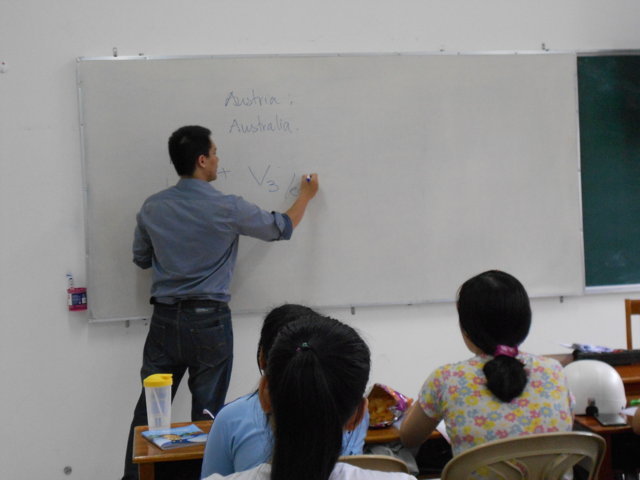 Austria.
Australia.
+ V3 /